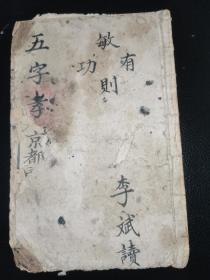 敏則有功
李斌讀
五字孝
京都